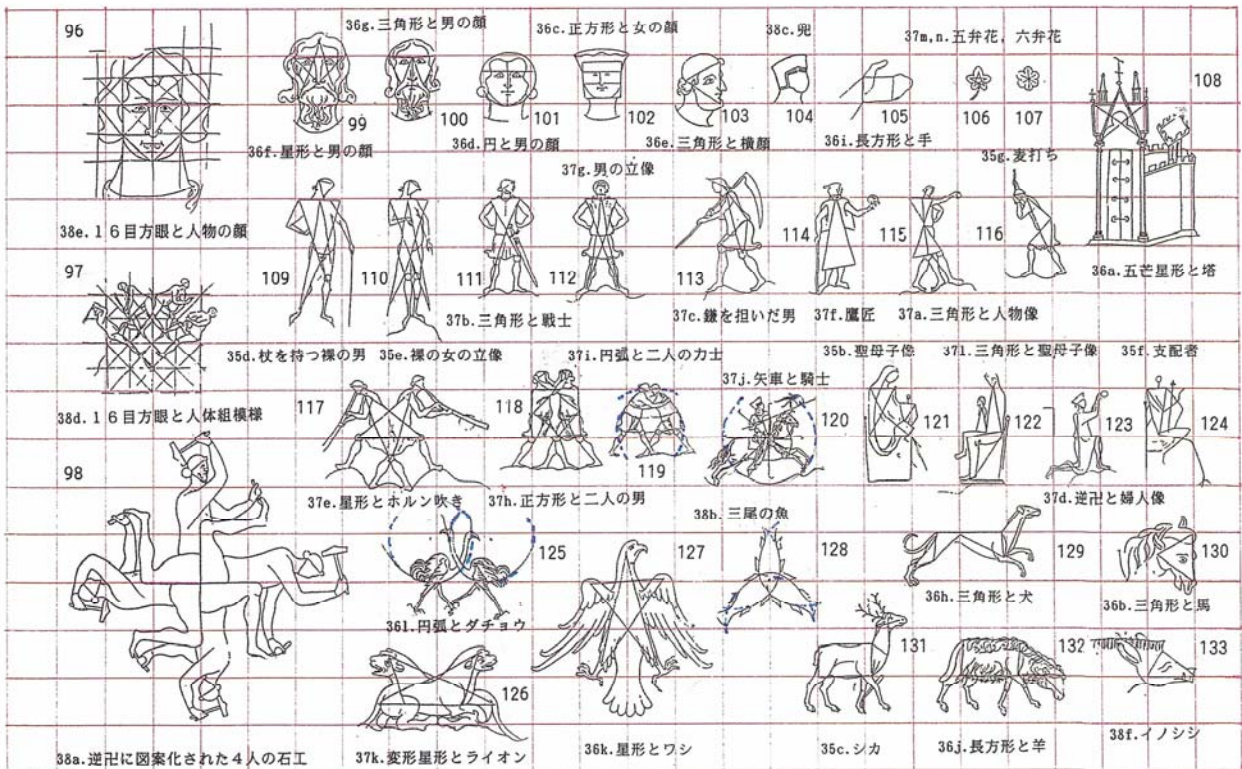 96
36g.三角形と男の顔
36c.正方形と女の顔
38c.兜
37m,n.五弁花，六弁花
108
99
100
101
102
103
104
105
106
107
36f.星形と男の顔
36d.円と男の顔
36e.三角形と横顔
36i.長方形と手
35g.麦打ち
37g.男の立像
38e.１６目方眼と人物の顔
97
109
110
111
112
113
114
115
116
36a.五芒星形と塔
37b.三角形と戦士
37c.鎌を担いだ男
37f.鷹匠
37a.三角形と人物像
35d.杖を持つ裸の男
35e.裸の女の立像
37i.円弧と二人の力士
35b.聖母子像
37l.三角形と聖母子像
35f.支配者
37j.矢車と騎士
38d.１６目方眼と人体組模様
117
118
119
120
121
122
123
124
98
37e.星形とホルン吹き
37h.正方形と二人の男
37d.逆卍と婦人像
38b.三尾の魚
125
127
128
129
130
36h.三角形と犬
36b.三角形と馬
36l.円弧とダチョウ
126
131
132
133
38a.逆卍に図案化された４人の石工
37k.変形星形とライオン
36k.星形とワシ
35c.シカ
36j.長方形と羊
38f.イノシシ